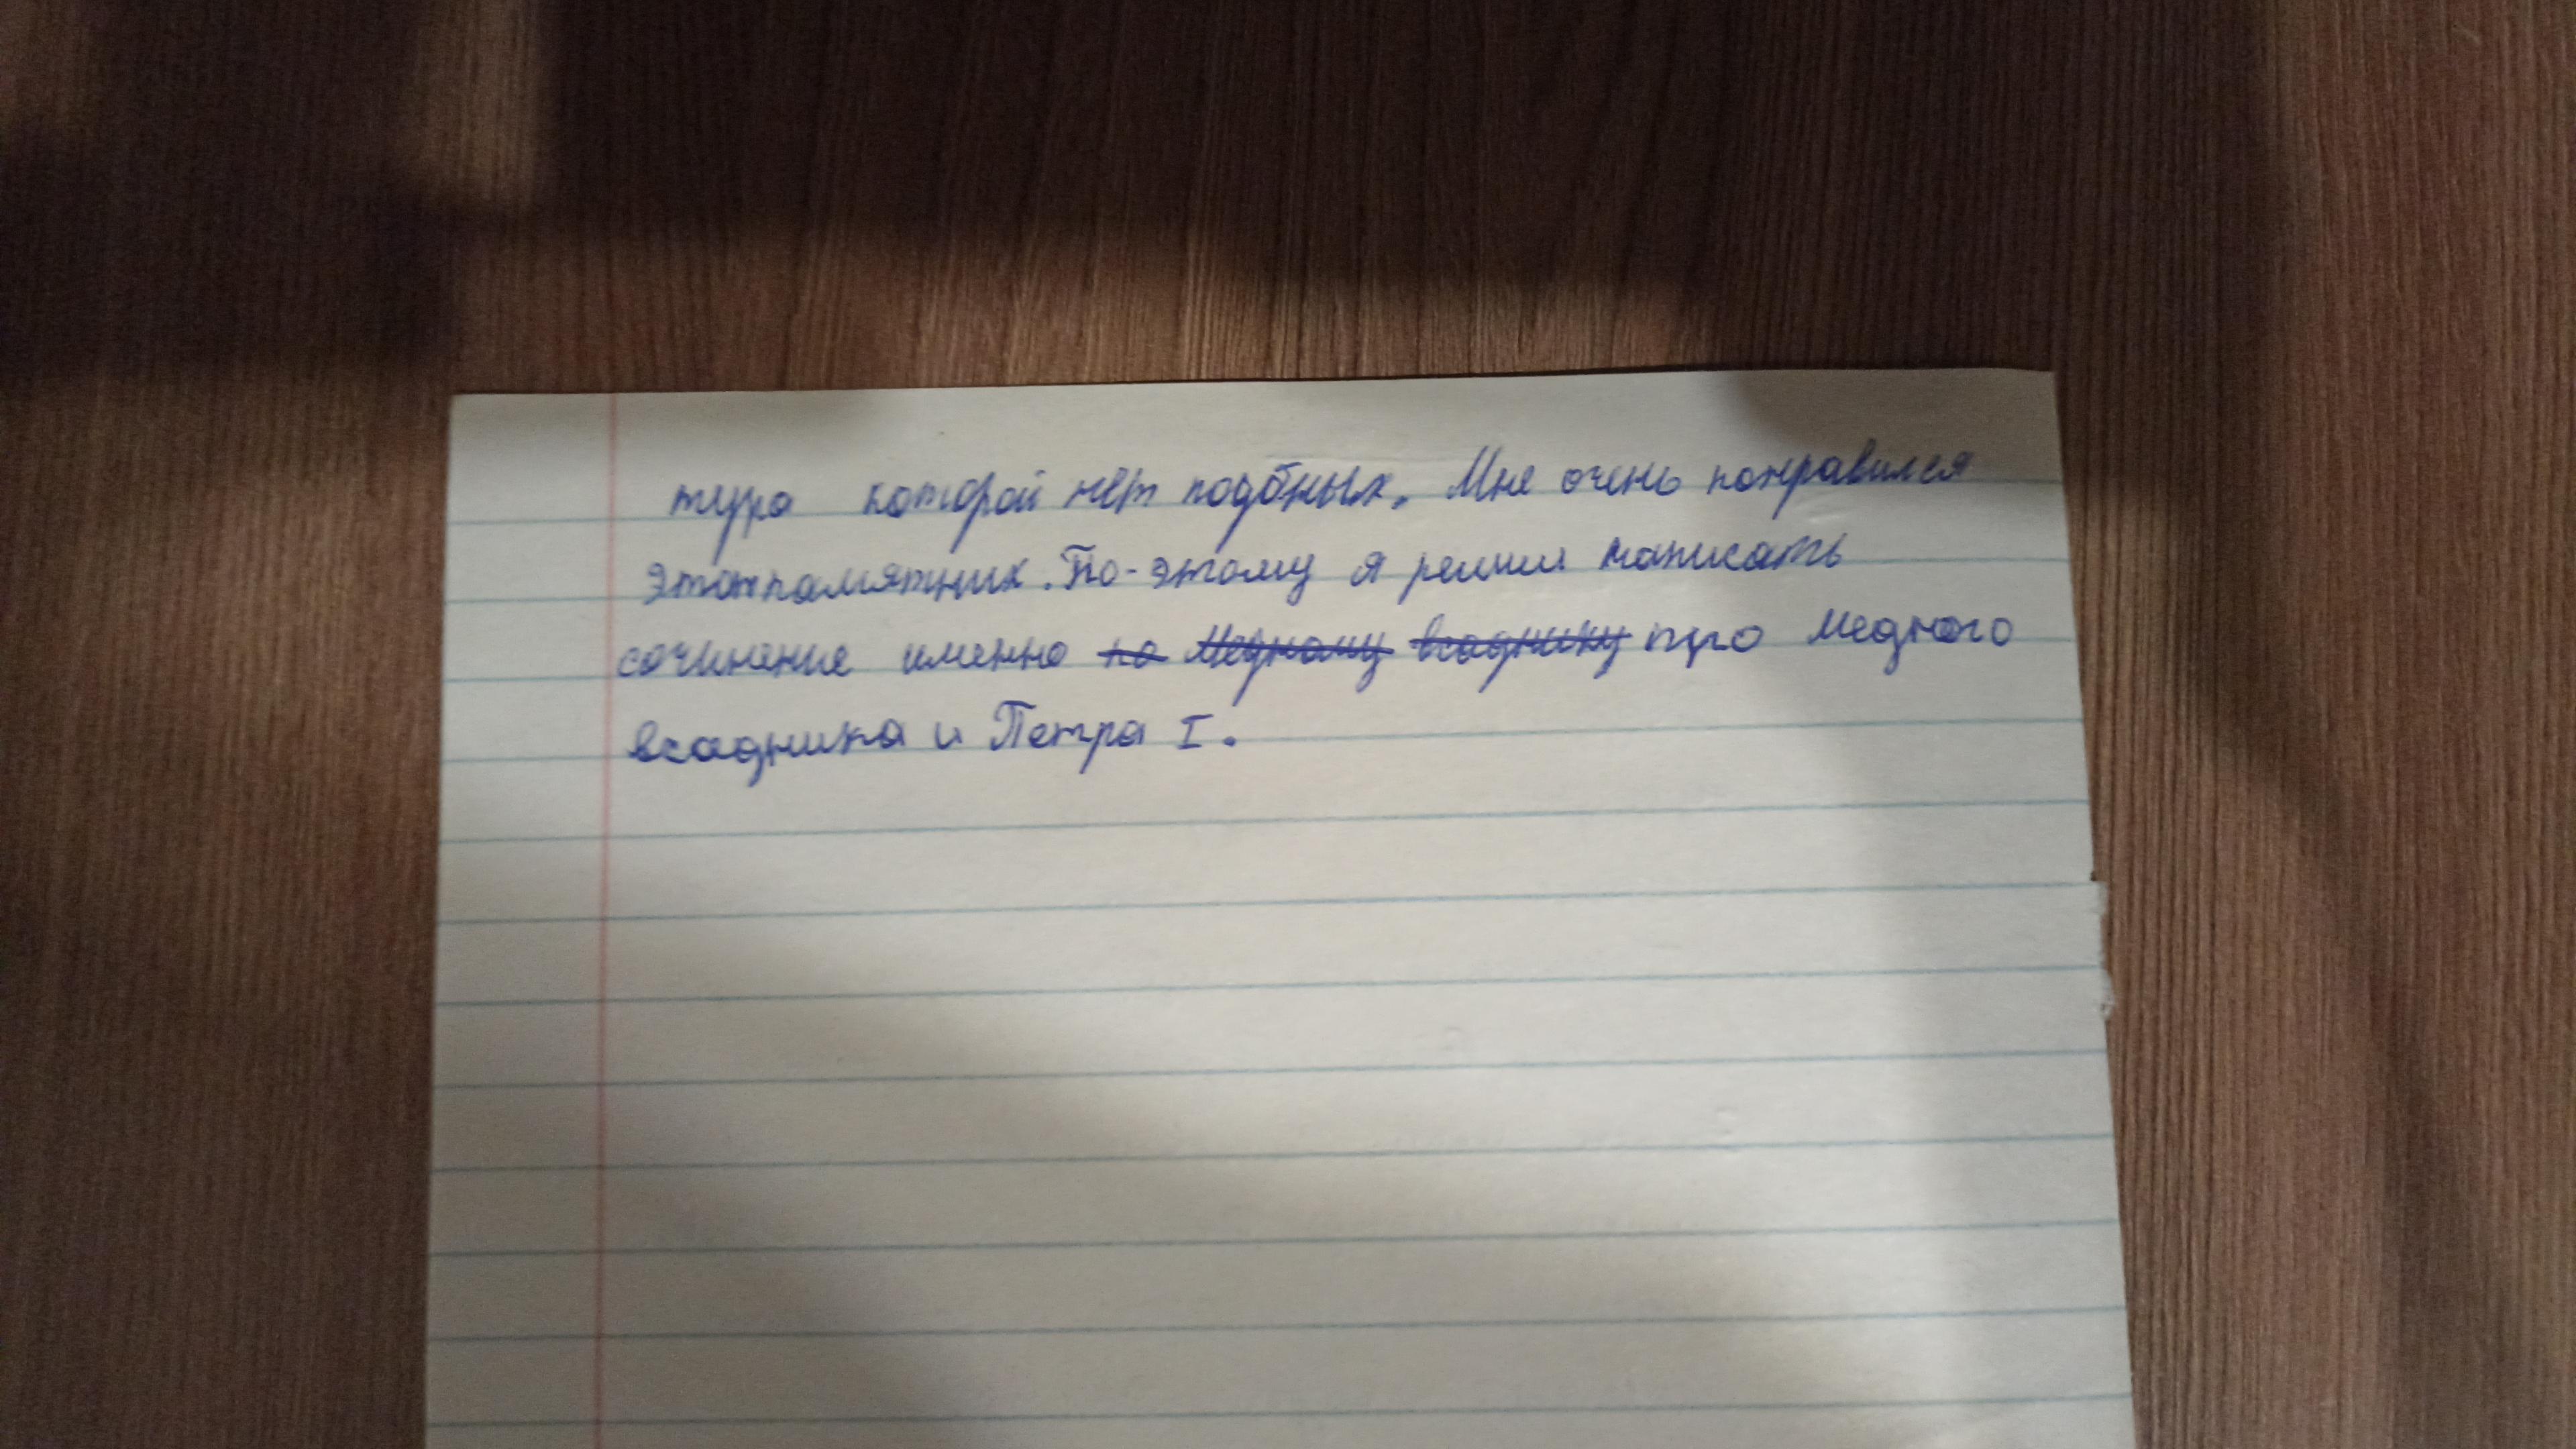 тура которой нет подбных. Мне очень понравился
этот памятник. По-этому я решил написать
сочинение именно по Медному всаднику про медного
всадника и Петра I.